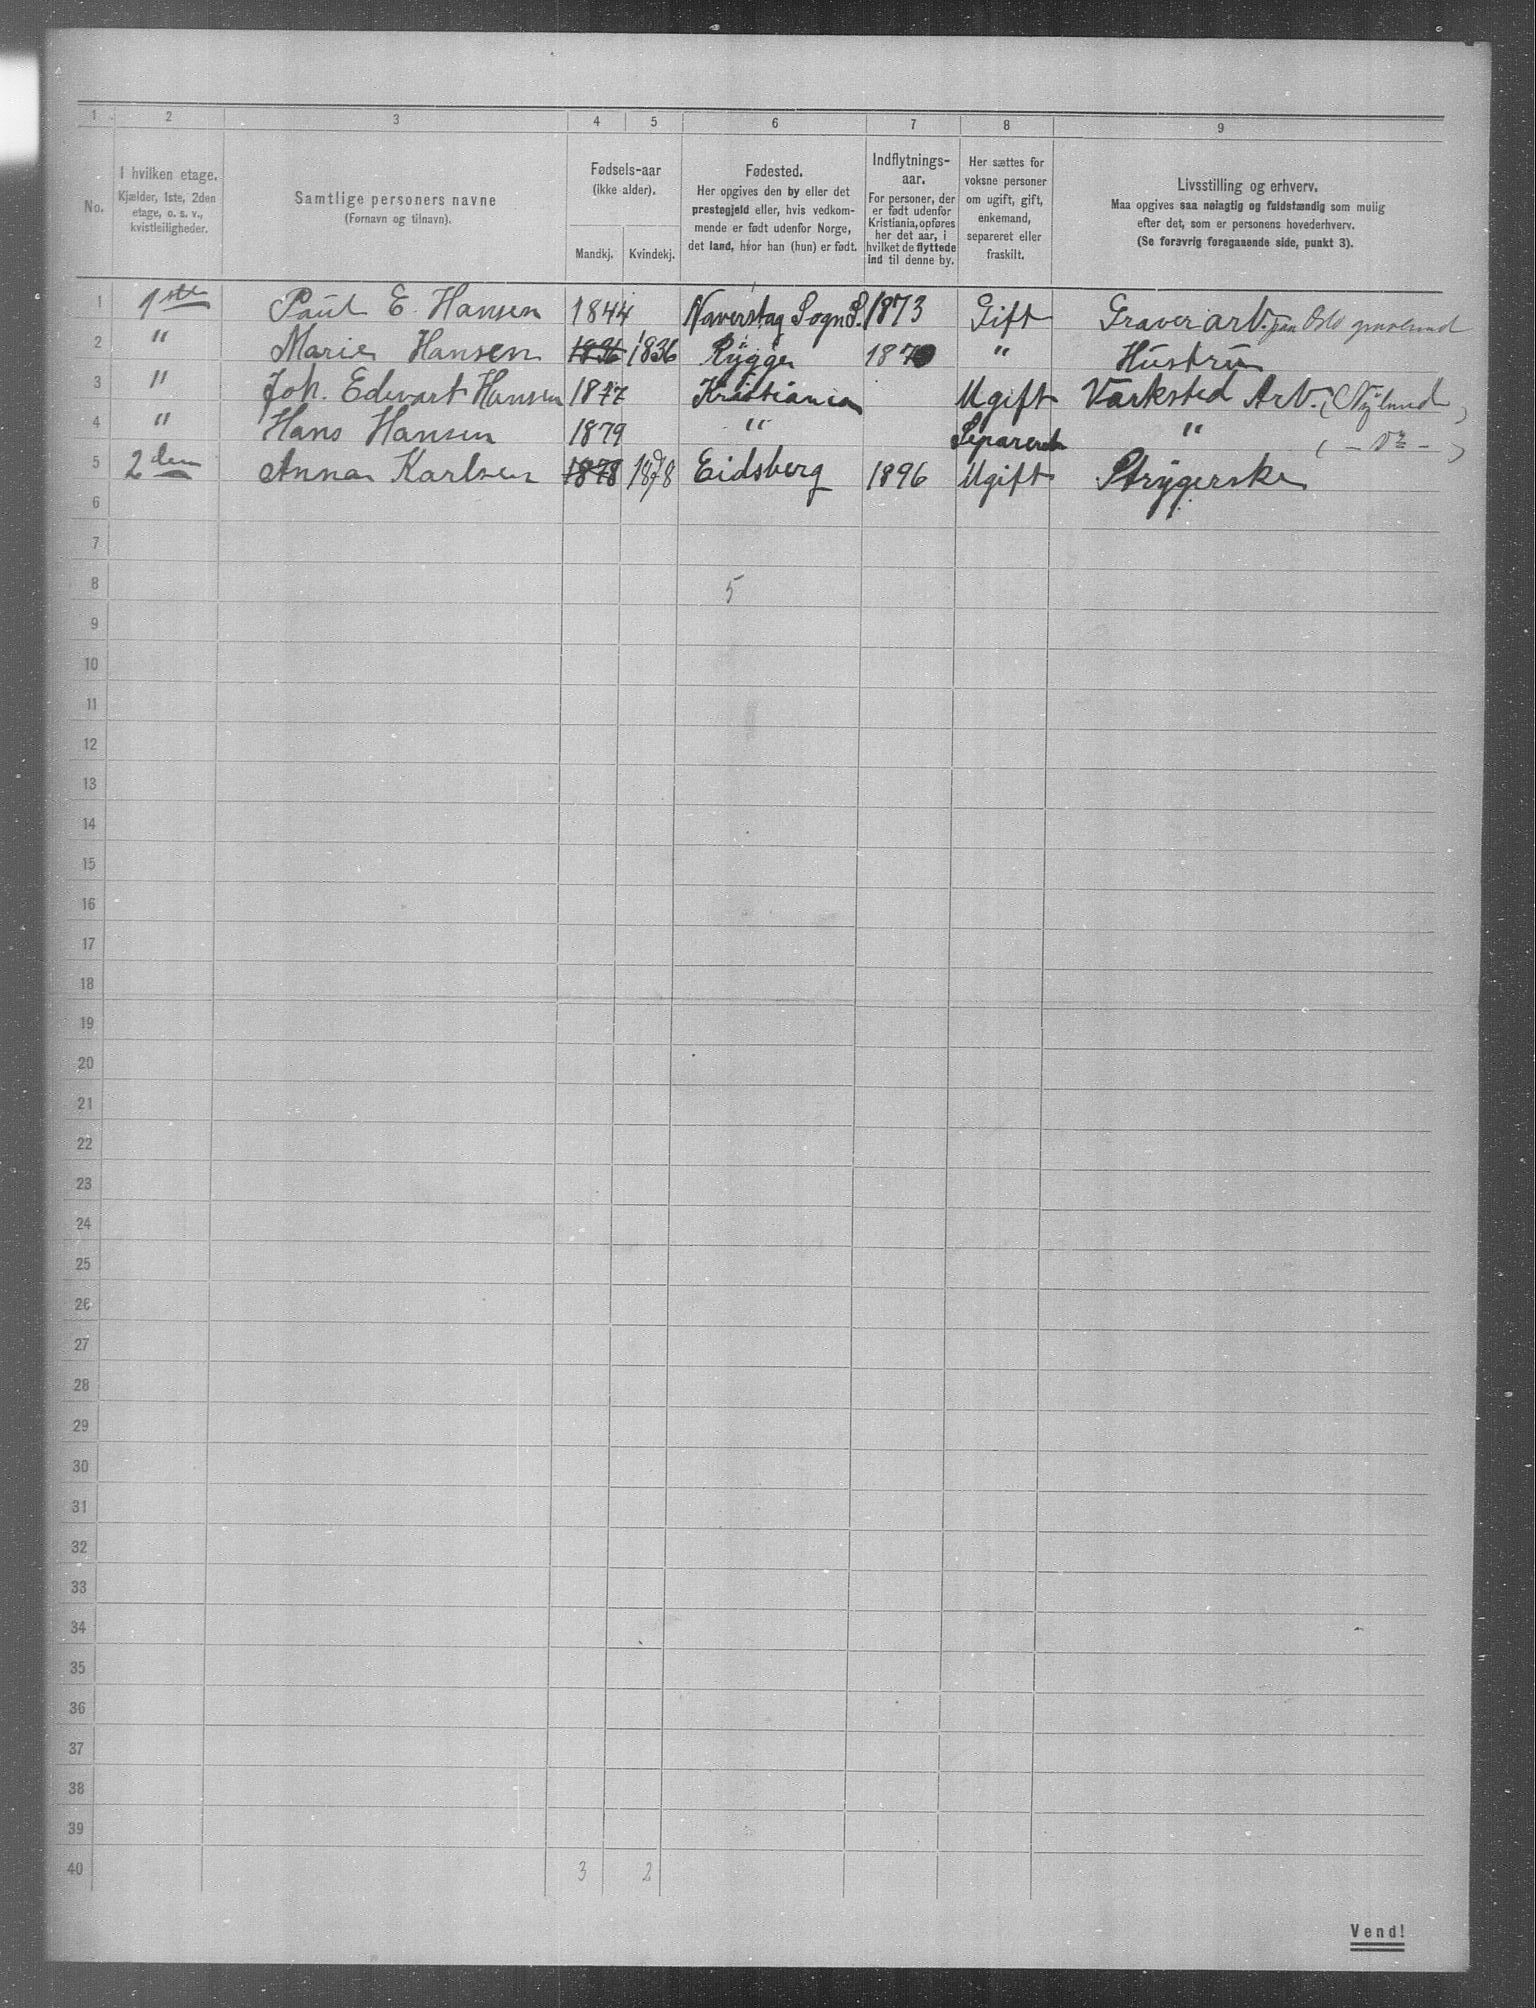 1 2 3 4 5 6 7 8 9
No.
I hvilken etage.
Kjælder, 1ste, 2den
etage, o. s. v.,
kvistleiligheder.
Samtlige personers navne
(Fornavn og tilnavn).
Fødsels-aar
(ikke alder).
Mandkj. Kvindekj.
Fødested.
Her opgives den by eller det
prestegjeld eller, hvis vedkom-
mende er født udenfor Norge,
det land, hvor han (hun) er født.
Indflytnings-
aar.
For personer, der
er født udenfor
Kristiania, opføres
her det aar, i
hvilket de flyttede
ind til denne by.
Her sættes for
voksne personer
om ugift, gift,
enkemand,
separeret eller
fraskilt.
Livsstilling og erhverv.
Maa opgives saa nøiagtig og fuldstændig som mulig
efter det, som er personens hovederhverv.
(Se forøvrig foregaaende side, punkt 3).
1 1ste Paul E. Hansen 1844 Naverstag Sogn S. 1873 Gift Graverarb. paa Oslo
2 " Marie Hansen 1836 1836 Rygge 1870 " Hustru
3 " Joh. Edvart Hansen 1877 Kristiania Ugift Værksted Arb. (Nylund)
4 " Hans Hansen 1879 " Separeret " ( - Do - )
5 2den Anna Karlsen 1878 1878 Eidsberg 1896 Ugift Strygerske
6
7
8 5
9
10
11
12
13
14
15
16
17
18
19
20
21
22
23
24
25
26
27
28
29
30
31
32
33
34
35
36
37
38
39
40 3 2
Vend!